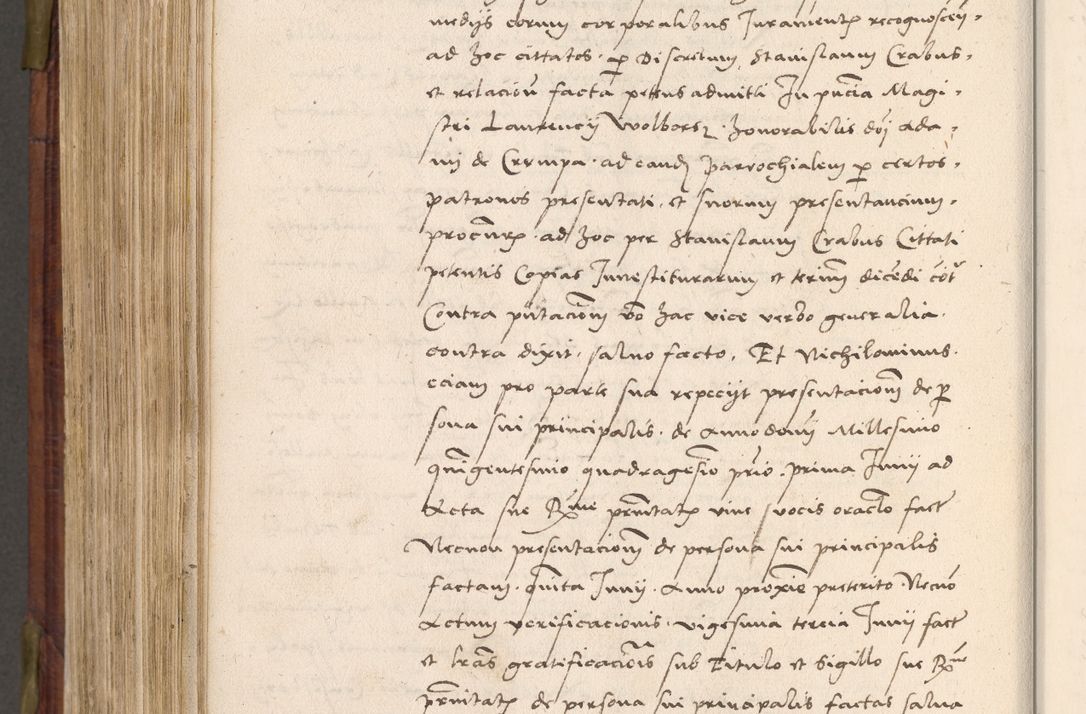 medijs eorum corporalibus Juramentꝫ recognoscen̄
ad hoc cittatos ꝑ Discretum Stanislaum Crabus
et relacioñ facta petens admitti In pn̄cia Magi
stri Laurencij Wolborz honorabilis dn̄i Ada
mi de Crempa ad eand̄ parrochialem ꝑ certos
patronos presentati et suorum presentancium
procurꝫ ad hoc per Stanislaum Crabus Cittati
petentis Copias Inuestiturarum et terim̄ dicēdi cot̄
Contra pn̄tacionem vō hac vice verbo generalia
contra dixit saluo facto Et Nichilominus
eciam pro parte sua repecijt presentacionem de ꝑ
sona sui principalis de Anno domini Millesimo
quīgentesimo quadragesīo prīo prima Junij ad
Acta sue Rme prn̄itatꝫ viue vocis oraclo fact
Necnon presentacionem de persona sui principalis
factam quīta Junij Anno proxīe preterito Necnō
Actum verificacionis vigesima tercia Junij fact
et lr̄as gratificacionis sub Titulo et Sigillo sue Rme
prn̄itatꝫ de persona sui principalis factas salua